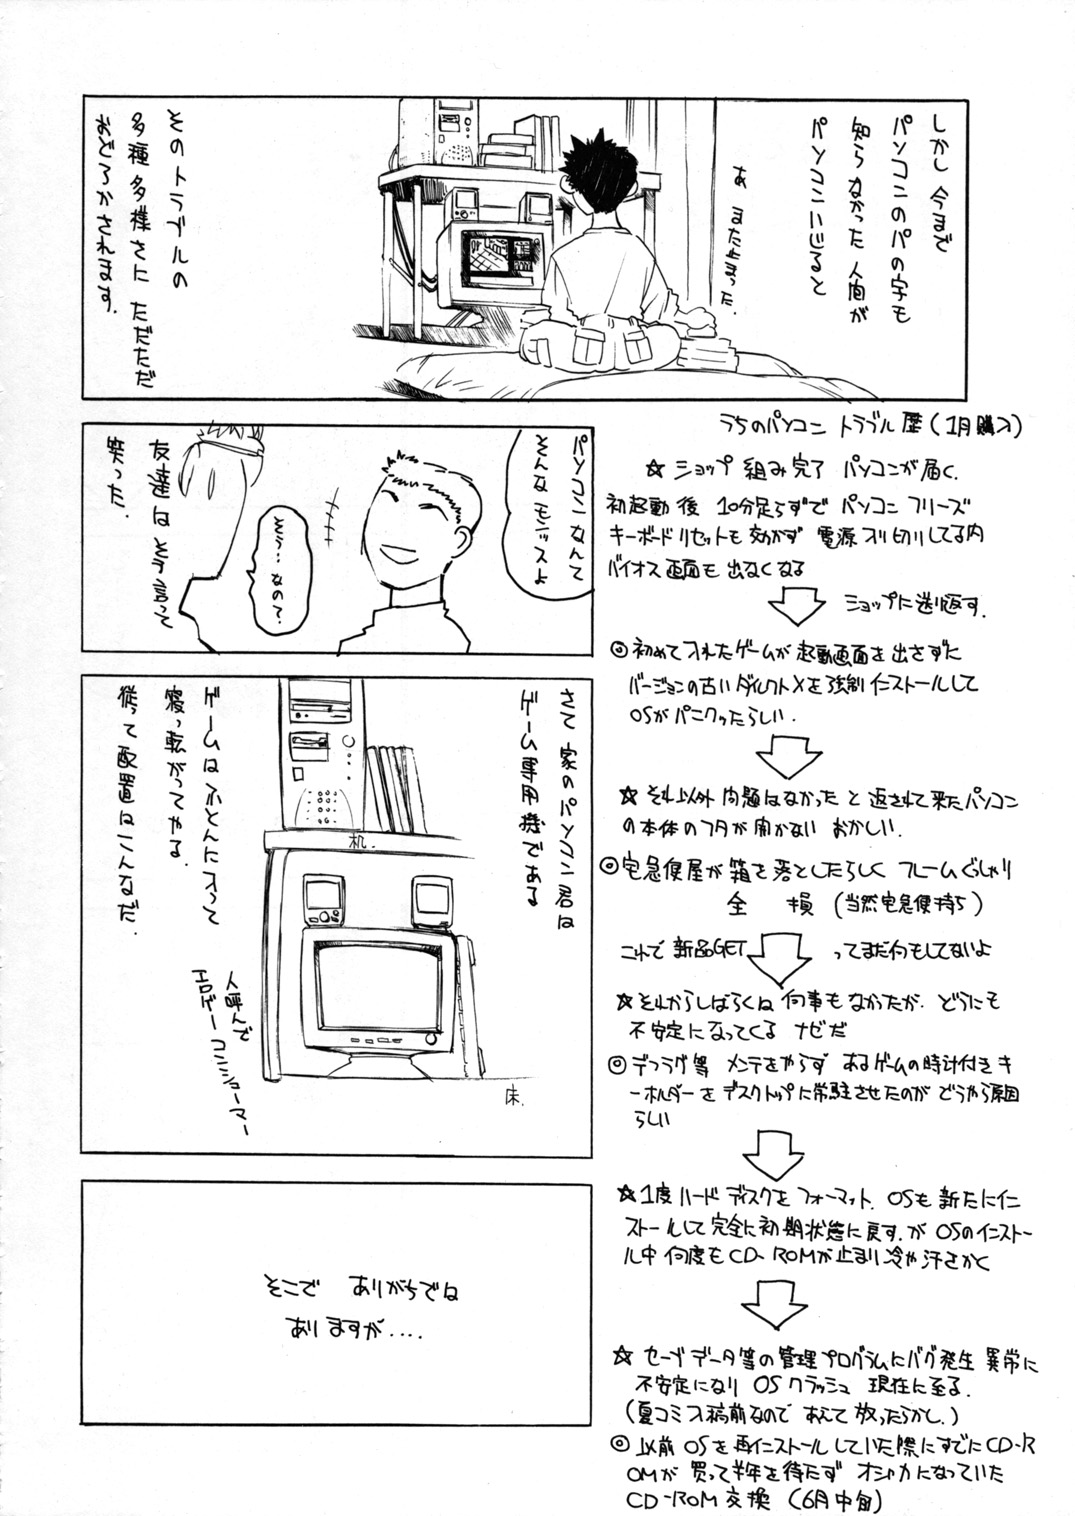 しかし 今まで
パソコンのパの字も
知らなかった 人間が
パソコンいじると
あ また止まった.
そのトラブルの
多種多様さに ただただ
おどろかされます.
うちのパソコン トラブル歴(1月購入)
☆ ショップ 組み完了 パソコンが届く.
初起動後 10分足らずで パソコン フリーズ
キーボードリセットも効かず 電源入り切りしてる内
バイオス画面も 出なくなる
ショップに送り返す.
◎初めて入れたゲームが 起動画面を出さずに
バージョンの古いダイレクトXを強制インストールして
OSがパニクったらしい.
☆それ以外 問題はなかった と 返されて来たパソコン
の本体のフタが開かない おかしい.
◎宅急便屋が箱を落としたらしく フレームぐしゃり
全 損 (当然宅急便持ち)
これで新品GET ってまだ何もしてないよ
☆それからしばらくは 何事もなかったが. どうにも
不安定になってくる ナゼだ
◎デフラグ等 メンテをやらず あるゲームの時計付きキ
ーホルダーをデスクトップに常駐させたのが どうやら原因
らしい
☆1度ハードディスクをフォーマット. OSも新たにイン
ストールして完全に初期状態に戻す. が OSのインストー
ル中 何度もCD-ROMが止まり冷や汗さかく
☆ セーブデータ等の管理プログラムにバグ発生 異常に
不安定になり OSクラッシュ 現在に至る.
(夏コミ入稿前なので あえて放ったらかし.)
◎以前 OSを再インストールしていた際にすでにCD-R
OMが 買って半年を待たず オシャカになっていた
CD-ROM交換 (6月中旬)
パソコンなんて
そんなモンスよ
そう…なの?
友達は そう言って
笑った.
さて 家のパソコン君は
ゲーム専用機である
机.
床.
ゲームは ふとんに入って
寝っ転がってやる.
従って配置はこんなだ.
人呼んで
エロゲーコンショーマー
そこで ありがちでは
ありますが....